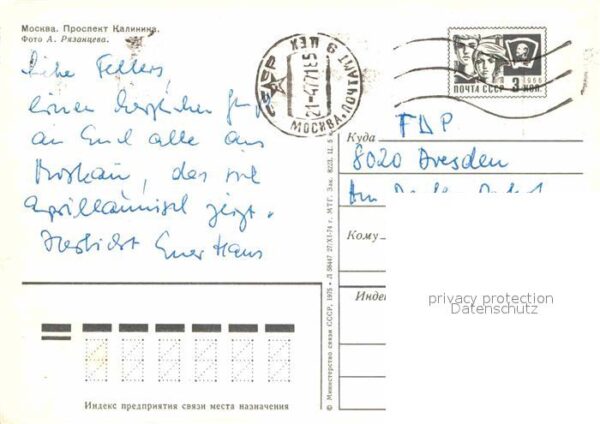 Москва. Проспект Калинина.
Фото А. Рязанцева.
Liebe Fellers,
einen herzlichen Gruß
an Euch alle aus
Moskau, das sich
aprillaunisch zeigt.
Herzlichst Euer Hans
СССР
МОСКВА. ПОЧТАМТ
9 ЦЕХ
21-4 77 1185
1966
ПОЧТА СССР 3 КОП.
Куда
FDP
8020 Dresden
Кому
Индекс
privacy protection
Datenschutz
Индекс предприятия связи места назначения
© Министерство связи СССР, 1975 • Л 58447 27/XI-74 г. МТГ. Зак. 8223. Ц. 5